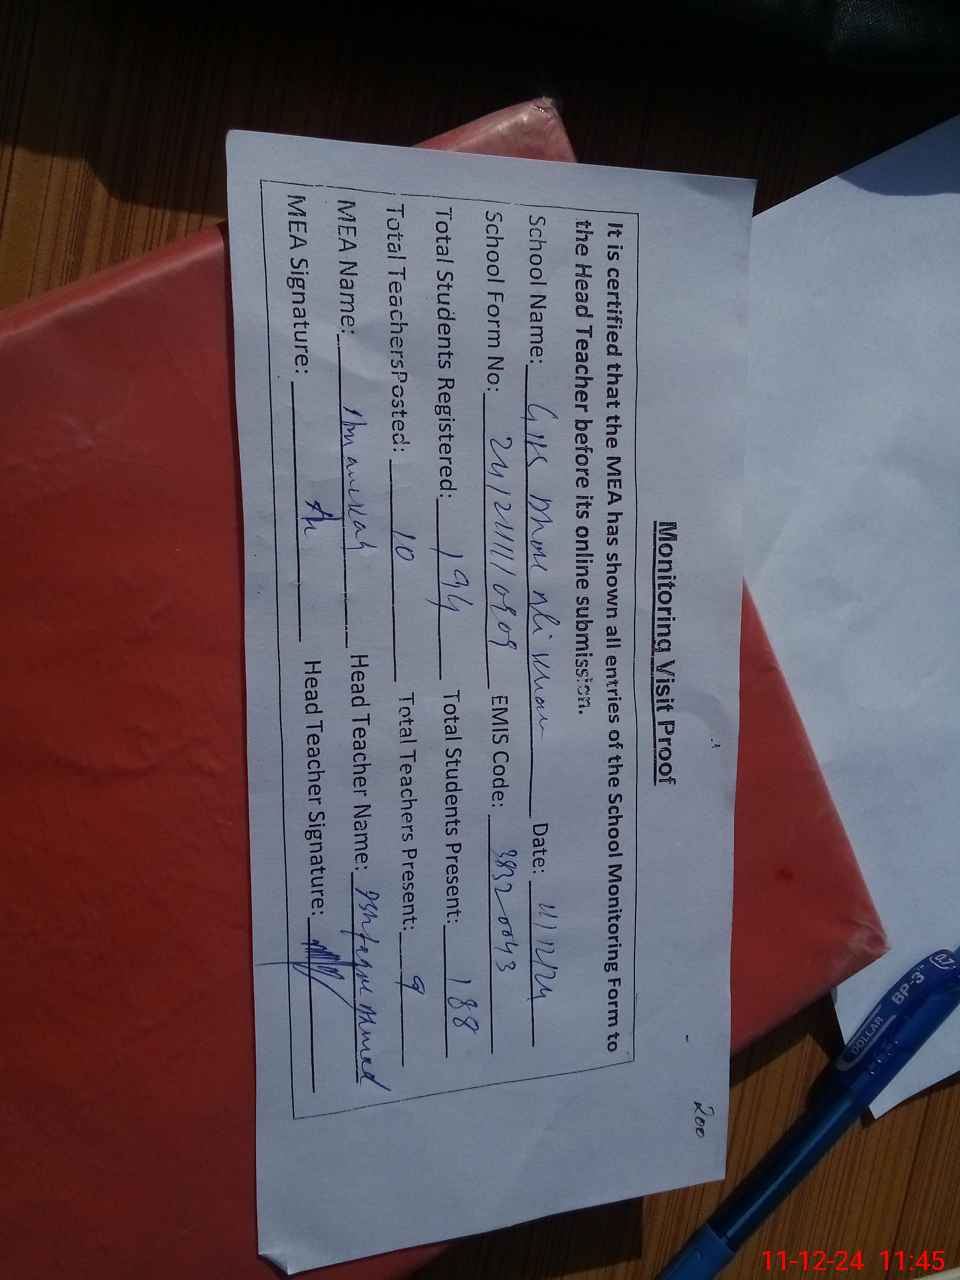 200
Monitoring Visit Proof
It is certified that the MEA has shown all entries of the School Monitoring Form to
the Head Teacher before its online submission.
School Name: GHS Khan Date: 11/12/24
School Form No: EMIS Code: 38320043
Total Students Registered: 194 Total Students Present: 188
Total TeachersPosted: 10 Total Teachers Present: 9
MEA Name: Head Teacher Name: Ahmed
MEA Signature: Head Teacher Signature:
0.7 BP-3
DOLLAR
11-12-24 11:45